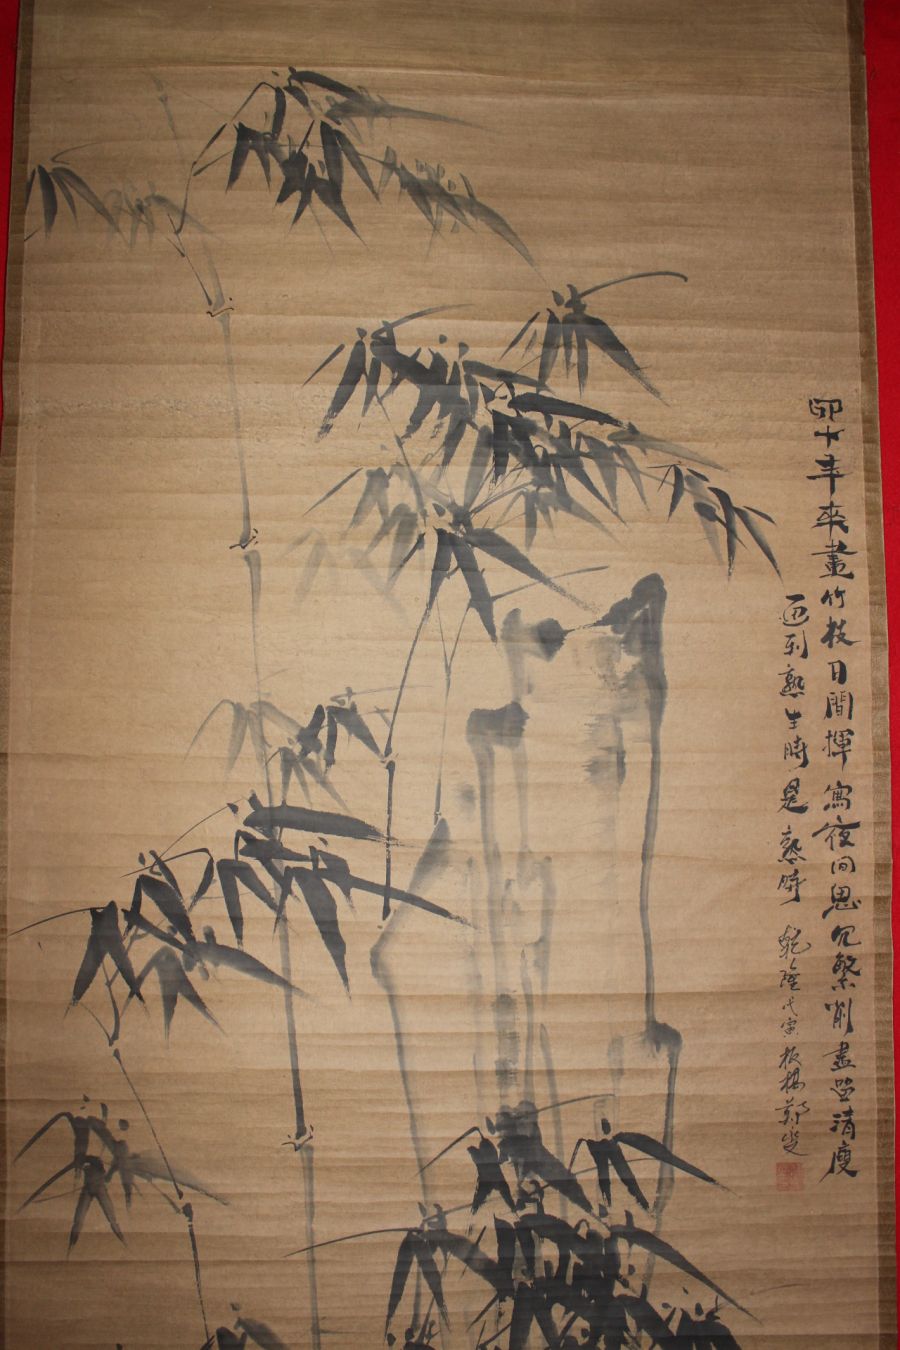 四十年来畫竹枝日間揮寫夜间思冗繁削盡留清瘦
画到熟生時是熟時
乾隆戊寅板橋鄭燮